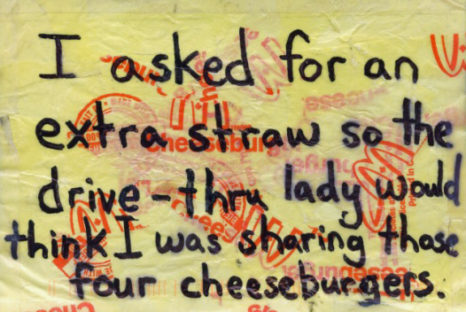 I asked for an
extra straw so the
drive-thru lady would
think I was sharing those
four cheeseburgers.